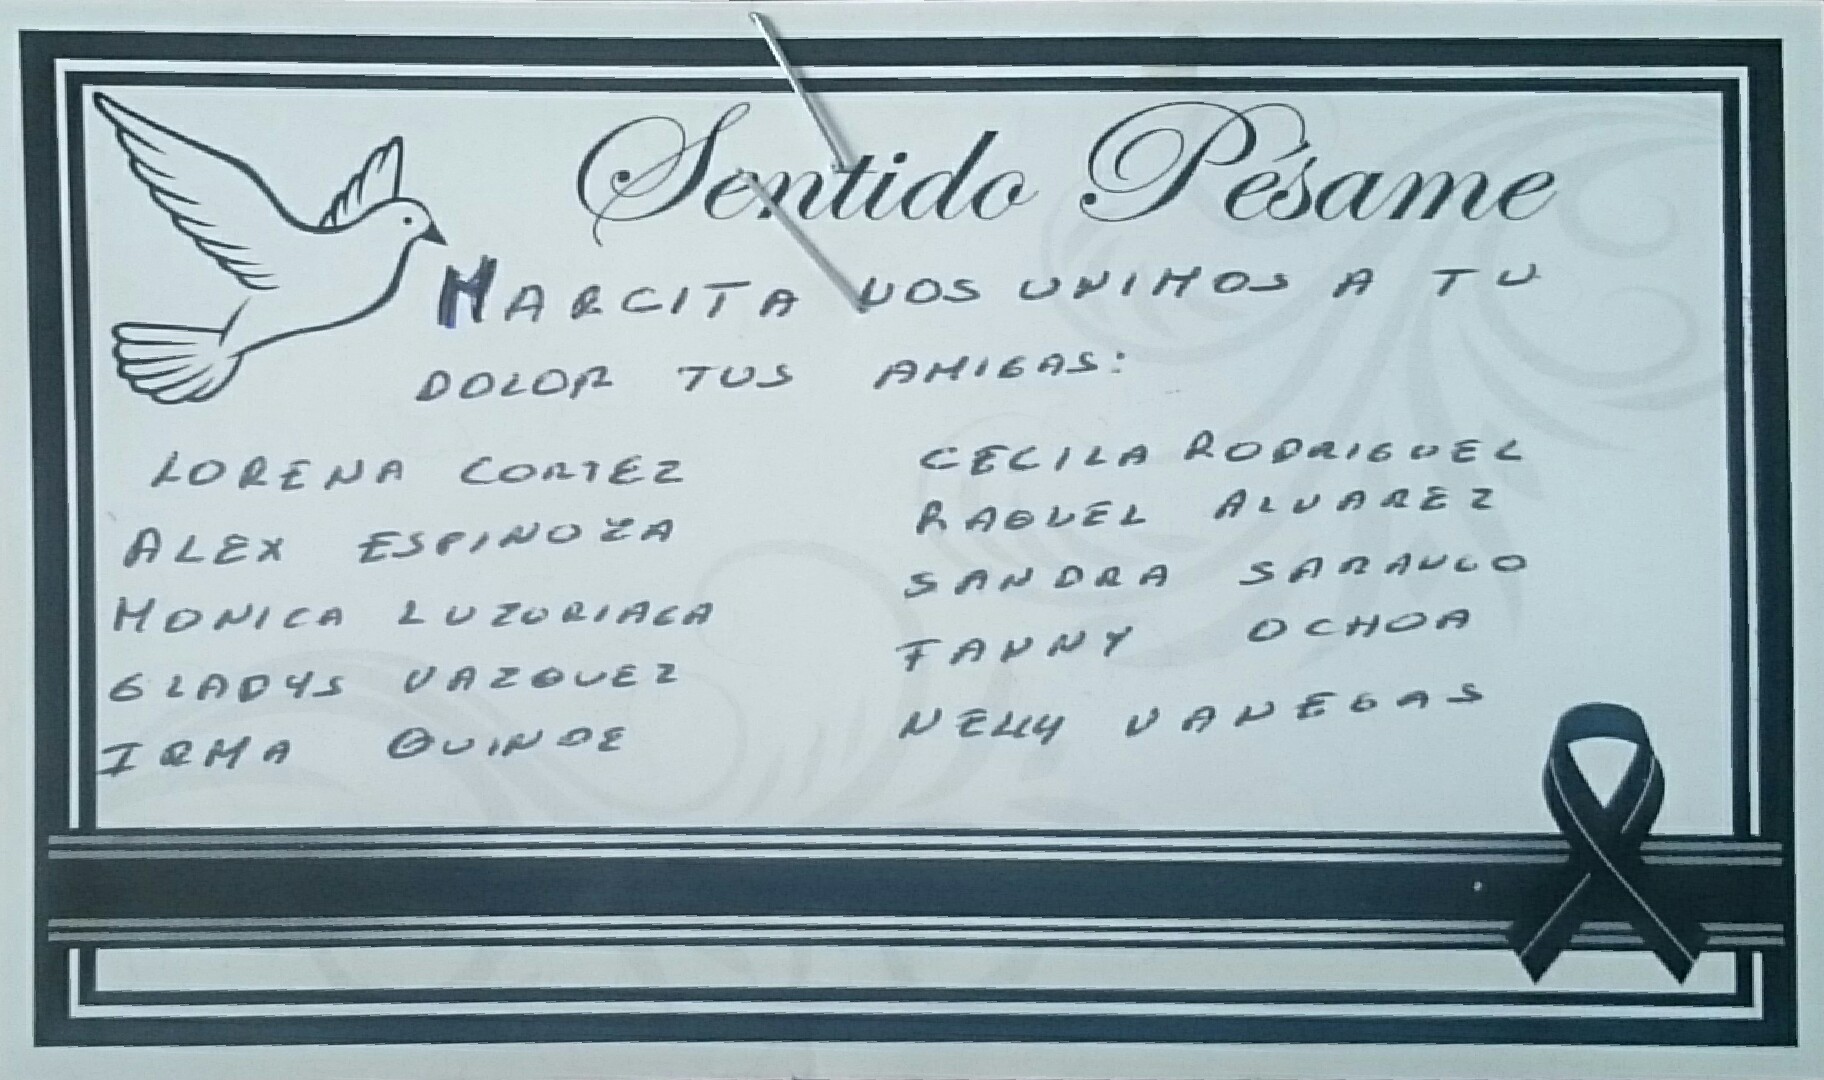 Sentido Pésame
MARCITA NOS UNIMOS A TU
DOLOR TUS AMIGAS:
LORENA CORTEZ
ALEX ESPINOZA
MONICA LUZURIAGA
GLADYS VAZQUEZ
IRMA QUINDE
CECILA RODRIGUEZ
RAQUEL ALVAREZ
SANDRA SARAUCO
FANNY OCHOA
NELLY VANEGAS